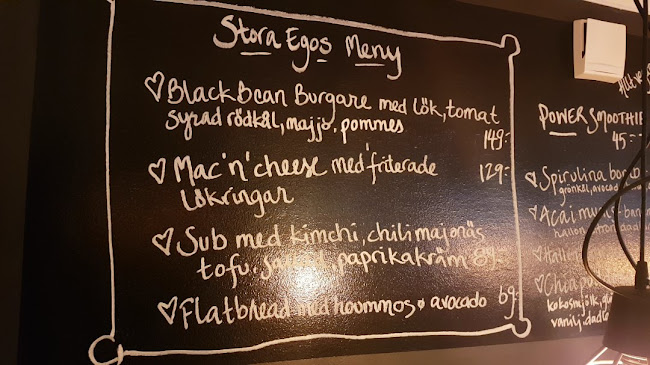 Stora Egos Meny
Black Bean Burgare med lök, tomat
syrad rödkål, majjo, pommes
149:-
Mac'n'cheese med friterade 129:-
lökringar
Sub med kimchi, chilimajonäs
tofu, paprikakräm 89:-
Flatbread med hoummos & avocado 69:-
Allt
POWER SMOOTHIE
45:-
Spirulina
grönkål, avocado
Acai
hallon
kokosmjölk,
vanilj,